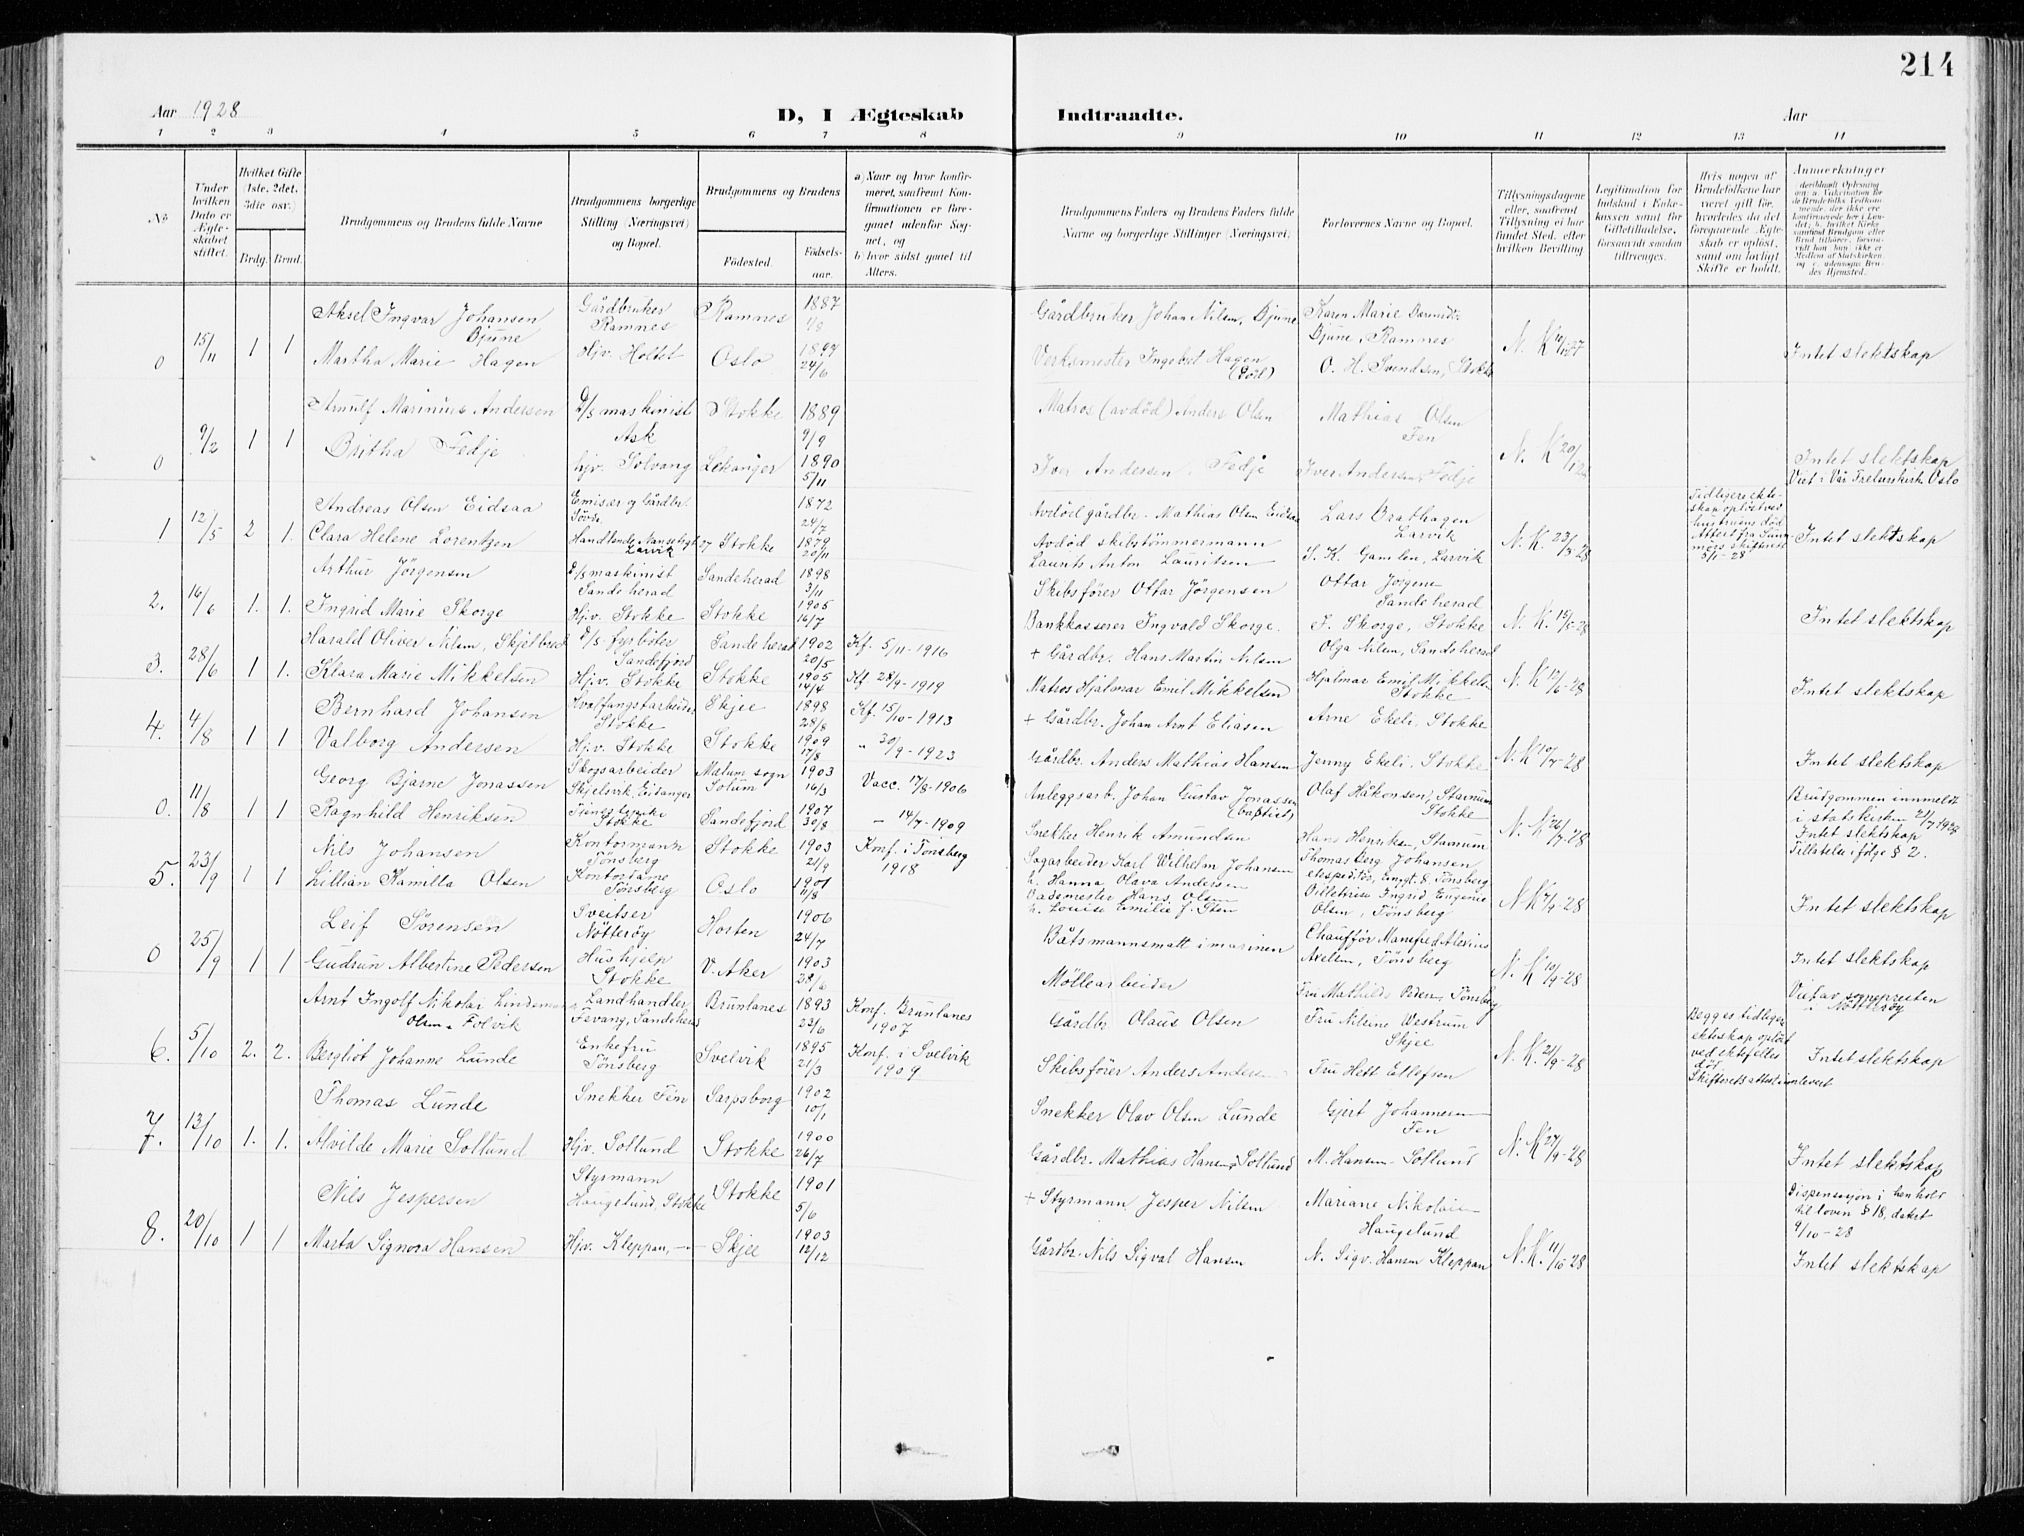 214
Aar 1928
D, I Ægteskab
Indtraadte.
Aar
1 2 3 4 5 6 7 8 9 10 11 12 13 14
No
Under hvilken Dato er Ægteskabet stiftet.
Hvilket Gifte (1ste, 2det, 3die osv.)
Brdg. Brud.
Brudgommens og Brudens fulde Navne
Brudgommens borgerlige Stilling (Næringsvei) og Bopæl.
Brudgommens og Brudens
Fødested.
Fødselsaar.
a) Naar og hvor konfirmeret, saafremt Konfirmationen er foregaaet udenfor Sognet, og
b) hvor sidst gaaet til Alters.
Brudgommens Faders og Brudens Faders fulde Navne og borgerlige Stillinger (Næringsvei)
Forlovernes Navne og Bopæl.
Tillysningsdagene eller, saafremt Tillysning ei har fundet Sted, efter hvilken Bevilling
Legitimation for Indskud i Enkekassen samt for Giftetilladelse, forsaavidt saadan tiltrænges.
Hvis nogen af Brudefolkene har været gift før, hvorledes da det foregaaende Ægteskab er opløst, samt om lovligt Skifte er holdt.
Anmerkninger
0 15/11 1 1
Aksel Ingvar Johansen Bjune
Gårdbruker Ramnes
Ramnes
1887
Gårdbruker Johan Nilsen, Bjune
Karen Marie
Bjune, Ramnes
Martha Marie Hagen
Hjv. Holtet
Oslo
1897 24/6
Verksmester Ingebret Hagen
O. H. Svendsen, Stokke
Intet slektskap
0 9/2 1 1
Arnulf Marinius Andersen
D/s maskinist Ask
Stokke
1889 9/9
Matros (avdöd) Anders Olsen
Mathias Olsen Fen
Britha Fedje
hjv. Solvang
Lekanger
1890 5/11
Iver Andersen Fedje
Iver Andersen Fedje
Intet slektskap
Viet i Vår Frelsers kirke Oslo
1 12/5 2 1.
Andreas Olsen Eidsaa
Emisær og Gårdbr.
1872 24/7
Avdöd gårdbr. Mathias Olsen Eidsaa
Lars Brathagen Larvik
Clara Helene Lorentzen
Handlende Nansetgt 27 Larvik
Stokke
1879 20/11
Avdöd skibstömmermann
Anton Lauritsen
S. K. Gamlen, Larvik
N. K. 23/3 28
Tidligere ekteskap oplöst ved hustruens död
Intet slektskap
2. 16/6 1. 1.
Arthur Jörgensen
D/s maskinist Sandeherad
Sandeherad
1898 3/11
Skibsförer Ottar Jörgensen
Ottar Jörgensen Sandeherad
Ingrid Marie Skorge
Hjv. Stokke
Stokke
1905 16/7
Bankkasserer Ingvald Skorge.
F. Skorge, Stokke
N. K. 15/5-28
Intet slektskap
3. 28/6 1 1.
Harald Oliver Nilsen, Skjelbred
D/s fyrböter Sandefjord
Sandeherad
1902 20/5
Kf. 5/11-1916
+ Gårdbr. Hans Martin Nilsen
Olga Nilsen, Sandeherad
Klara Marie Mikkelsen
Hjv. Stokke
Stokke
1905 14/4
Kf 28/9-1919
Matros Hjalmar Emil Mikkelsen
Hjalmar Emil Mikkelsen Stokke
N. K 12/6-28
Intet slektskap
4. 4/8 1 1
Bernhard Johansen
Hvalfangstarbeider Stokke
Skjee
1898 28/8
Kf. 15/10-1913
+ Gårdbr. Johan Arnt Eliasen
Arne Ekeli, Stokke
Valborg Andersen
Hjv. Stokke
Stokke
1909 17/8
" 30/9-1923
Gårdbr. Anders Mathias Hansen
Jenny Ekeli, Stokke
N. K 10/7-28
Intet slektskap
0. 11/8 1 1
Georg Bjarne Jonassen
Skogsarbeider Skjelsvik, Eidanger
Mælum sogn Solum
1903 16/3
Vacc. 17/8-1906
Anleggsarb. Johan Gustav Jonassen (baptist)
Olaf Håkonsen, Stavnum Stokke
Ragnhild Henriksen
Stokke
Sandefjord
1907 30/8
- 14/7-1909
Snekker Henrik Amundsen
Hans Henriksen, Stavnum
N. K 26/7-28
Brudgommen innmeldt i statskirken 21/7 1928
Intet slektskap
Tillatelse ifölge § 2.
5. 23/9 1 1
Nils Johansen
Kontormann Tönsberg
Stokke
1903 21/9
Konf. i Tönsberg 1918
Sagarbeider Karl Wilhelm Johansen
h. Hanna Olava Andersen
Thomas Berg Johansen
ekspeditör, Tönsberg
Lillian Kamilla Olsen
Kontordame Tönsberg
Oslo
1901 11/8
Bademester Hans Olsen
h. Louise Emilie f. Sten
Ingrid Eugenie Olsen, Tönsberg
N. K 7/9-28
Intet slektskap
0 25/9 1 1
Leif Sörensen
Sveitser Nötteröy
Horten
1906 24/7
Båtsmannsmatt i marinen
Chaufför Manfred Alexius Axelsen, Tönsberg
Gudrun Albertine Pedersen
Hushjelp Stokke
V. Aker
1903 28/6
Möllearbeider
Fru Mathilde Pedersen Tönsberg
N. K 10/9-28
Intet slektskap
Viet av sognepresten i Nötteröy
6. 5/10 2. 2.
Arnt Ingolf Nikolai Lindeman Olsen Folvik
Landhandler Fevang, Sandeherad
Brunlanes
1893 23/6
Konf. Brunlanes 1907
Gårdbr Olaus Olsen
Fru Nilsine Westrum Skjee
Bergliot Johanne Lunde
Enkefru Tönsberg
Svelvik
1895 21/3
Konf. i Svelvik 1909
Skibsförer Anders Andersen
Fru Hett Ellefsen
N. K. 21/9-28
Begges tidligere ekteskap oplöst ved ektefelles död
Skifterets attest innlevert
Intet slektskap
7. 13/10 1. 1.
Thomas Lunde
Snekker Fen
Sarpsborg
1902 10/1
Snekker Olav Olsen Lunde
Gjert Johannesen Fen
Alvilde Marie Solund
Hjv. Solund
Stokke
1900 26/7
Gårdbr. Mathias Hansen Solund
M. Hansen Solund
N. K 27/9-28
Intet slektskap
8. 20/10 1 1
Nils Jespersen
Styrmann Haugelund, Stokke
Stokke
1901 5/6
+ Styrmann Jesper Nilsen
Mariane Nikolaisen Haugelund
Marta Signora Hansen
Hjv. Kleppan, -"-
Skjee
1903 12/12
Gårdbr. Nils Sigval Hansen
N. Sigv. Hansen Kleppan
N. K. 11/10-28
Dispensasjon i henhold til loven § 18, datert 9/10-28
Intet slektskap